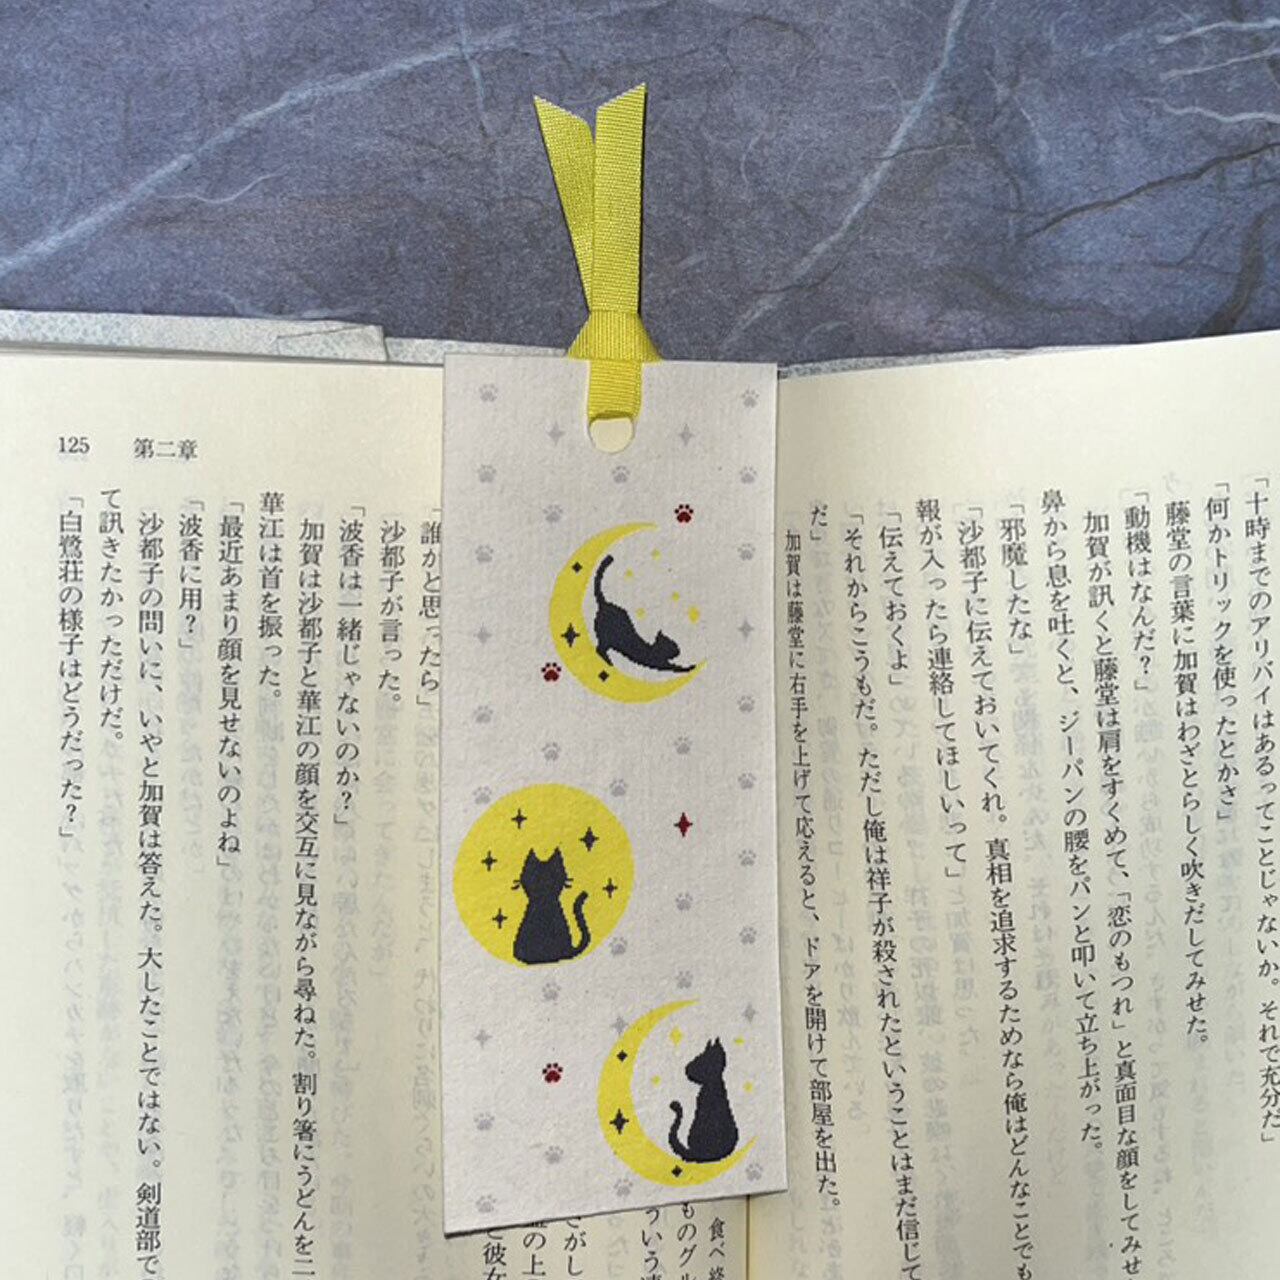 「十時までのアリバイはあるってことじゃないか。それで充分だ」
「何かトリックを使ったとかさ」
藤堂の言葉に加賀はわざとらしく吹きだしてみせた。
「動機はなんだ？」
加賀が訊くと藤堂は肩をすくめて、「恋のもつれ」と真面目な顔をしてみせ
鼻から息を吐くと、ジーパンの腰をパンと叩いて立ち上がった。
「邪魔したな」
「沙都子に伝えておいてくれ。真相を追求するためなら俺はどんなことでも
報が入ったら連絡してほしいって」
「伝えておくよ」
「それからこうもだ。ただし俺は祥子が殺されたということはまだ信じて
だ」
加賀は藤堂に右手を上げて応えると、ドアを開けて部屋を出た。
食べ終
ものグル
ういう
さがし
の上
と彼女
「誰かと思ったら」
沙都子が言った。
「波香は一緒じゃないのか？」
加賀は沙都子と華江の顔を交互に見ながら尋ねた。割り箸にうどんを二
華江は首を振った。
「最近あまり顔を見せないのよね」
「波香に用？」
沙都子の問いに、いやと加賀は答えた。大したことではない。剣道部で
て訊きたかっただけだ。
「白鷺荘の様子はどうだった？」
125 第二章